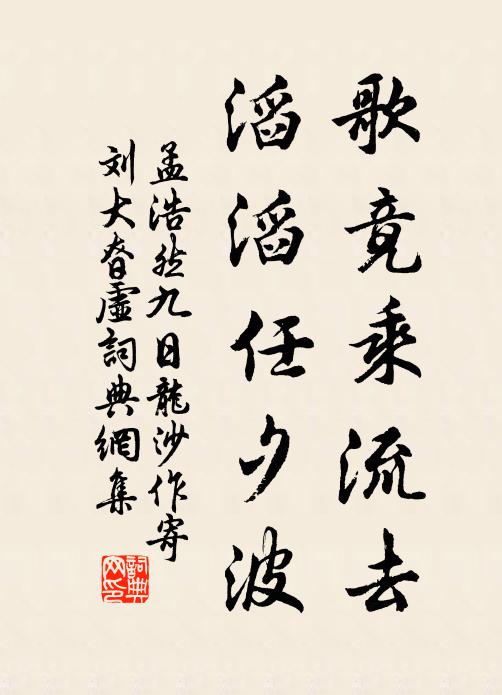 歌竟乘流去
滔滔任夕波
孟浩然九日龍沙作寄
刘大昚虛詞典網集
詞典
网印